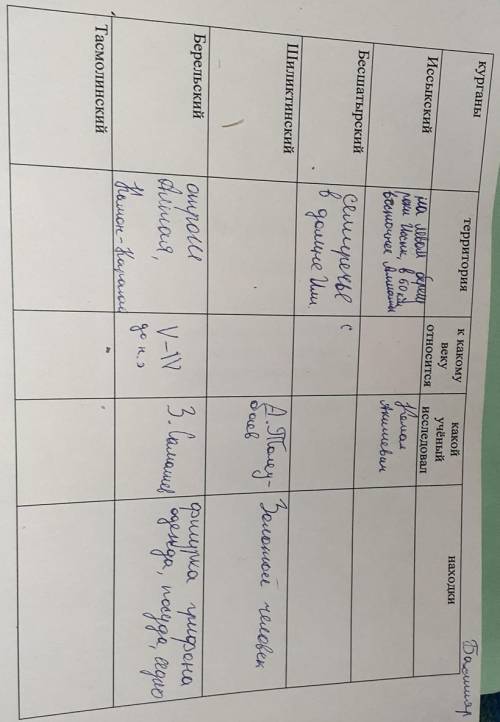 курганы
территория
к какому
веку
относится
какой
учёный
исследовал
находки
Иссыкский
на левом берегу
реки Иссык, в 60 км
восточнее Алматы
Кемал
Акишевич
Бесшатырский
Семиречье
в долине Или.
с
Шиликтинский
А. Толеу-
баев
Золотой человек
Берельский
отроги
Алтая,
Катон-Карагай
V-IV
до н.э
З. Самашев
фигурка грифона
одежда, посуда, седло
Тасмолинский